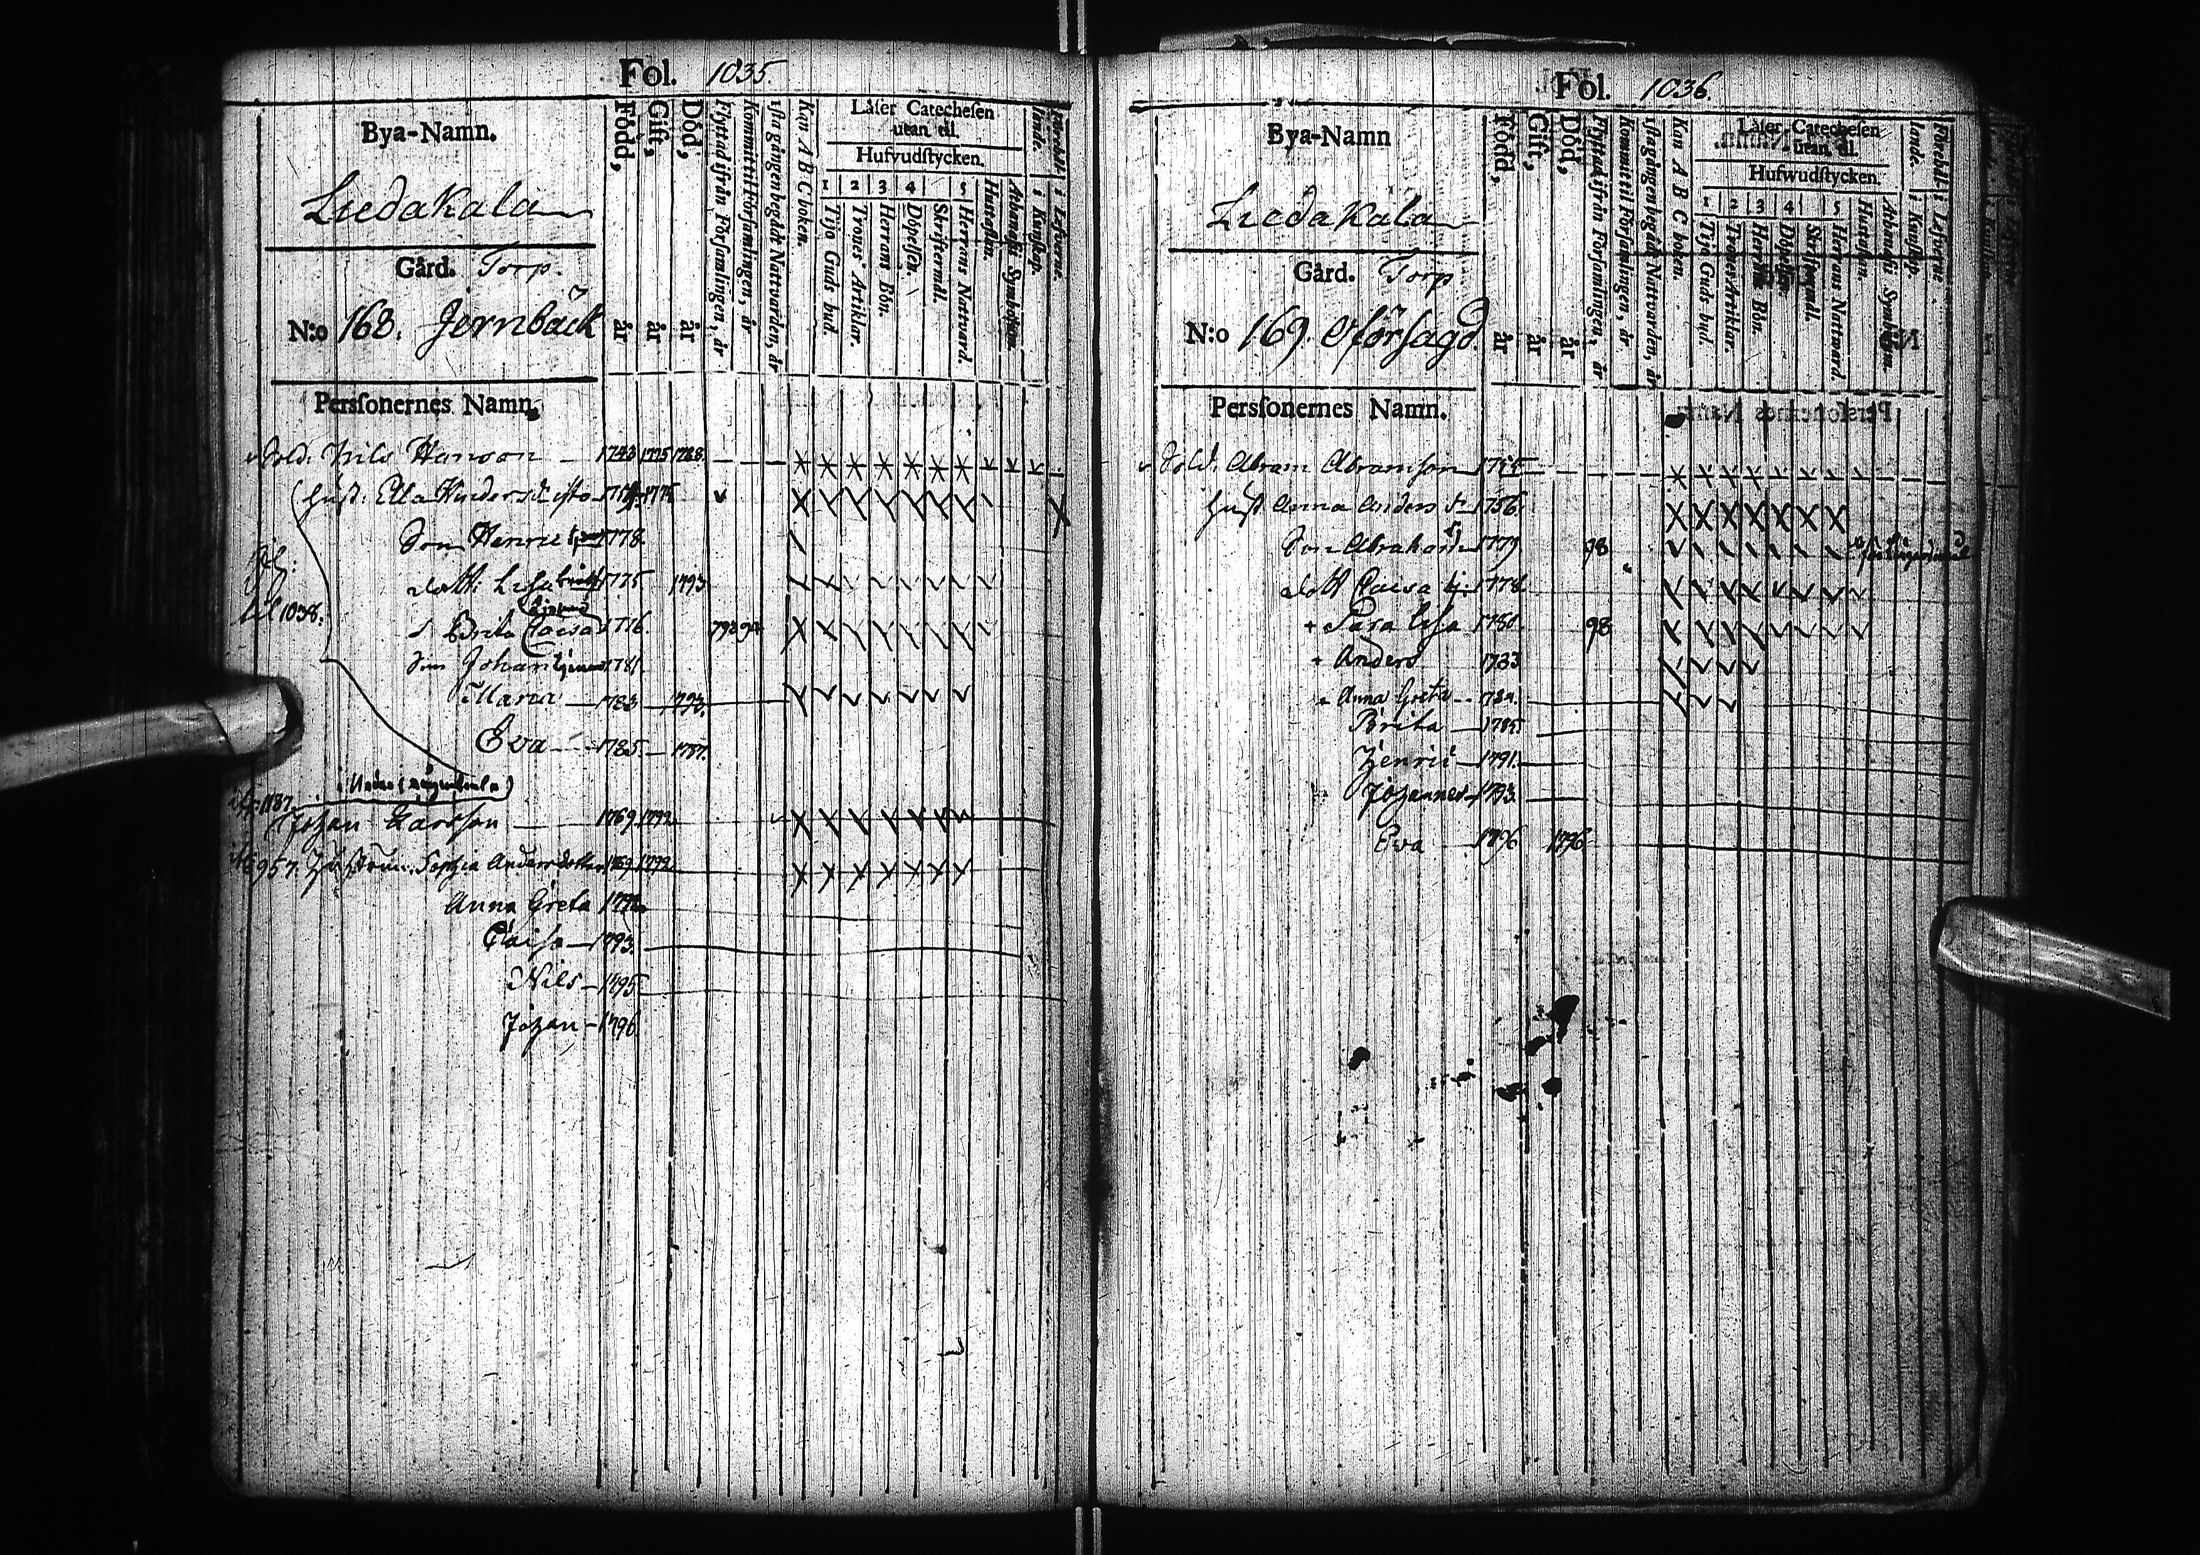 Fol. 1035.
Bya-Namn.
Liedakala
Gård. Torp.
N:o 168. Jernbäck
Perſonernes Namn.
Född, år
Gift, år
Död, år
Flyttad ifrån Förſamlingen, år
Kommit til Förſamlingen, år
1ſta gången begådt Nattvarden, år
Kan A B C boken.
Läſer Catecheſen
utan til.
Hufvudſtycken.
1 2 3 4 5
Tijo Guds bud.
Trones Artiklar.
Herrans Bön.
Döpelſen.
Skriftermål.
Herrans Nattvard.
Huustaflan.
Athanaſii Symbolum.
Förehållande. i Kunſkap.
i Lefverne.
Sold. Nils Hanson 1743 1775 1788.
Huſt. Ella 1775
Son Henric 1778.
dott. Lisa 1775 1793
Brita Caisa 1776.
Son Johan 1781.
Maria 1783 1793.
Eva 1785. 1787.
til 1038.
1187.
Johan Larsson 1769. 1792.
957. Huſtrun. Sophia Andersdotter 1769. 1792.
Anna Greta 1792.
Caisa 1793.
Nils 1795.
Johan 1796.
Fol. 1036.
Bya-Namn
Liedakala
Gård. Torp
N:o 169. Oförsagd.
Perſonernes Namn.
Född, år
Gift, år
Död, år
Flyttad ifrån Förſamlingen, år
Kommit til Förſamlingen, år
1ſta gången begådt Nattvarden, år
Kan A B C boken.
Läſer Catecheſen
utan til.
Hufwudſtycken.
1 2 3 4 5
Tijo Guds bud.
Trones Artiklar.
Herrans Bön.
Döpelſen.
Skriftermål.
Herrans Nattward.
Hustaflan.
Athanaſii Symbolum.
Förehållande. i Kunſkap.
i Lefverne.
Sold. Abram Abramsson 1755
Huſt Anna Anders dr 1756.
Son Abraham 1779 98
dott Caisa 1778.
Sara Lisa 1780. 98
Anders 1783
Anna Greta 1784.
Brita 1789.
Henric 1791.
Johannes 1793.
Eva 1796 1796